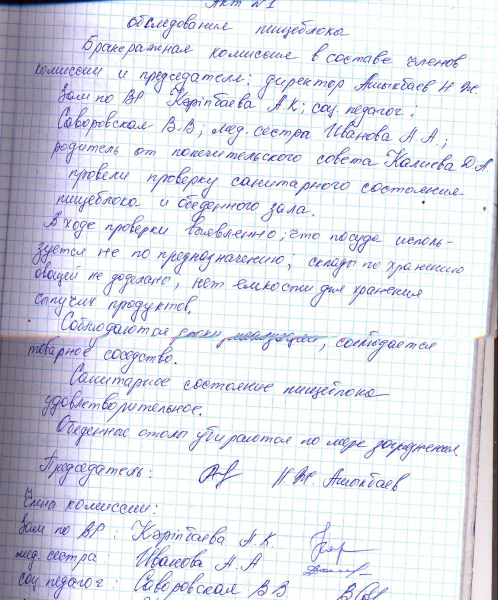 Акт №1
обследования пищеблока
Бракеражная комиссия в составе членов
комиссии и председателя: директор Ашыкбаев Н Ж
Зам по ВР Кәріпбаева А К; соц педагог:
Саворовская В.В; мед. сестра Иванова А.А.;
родитель от попечительского совета Калиева Д.А
провели проверку санитарного состояния
пищеблока и обеденного зала.
В ходе проверки выявленно; что посуда исполь-
зуется не по предназначению; склады по хранению
овощей не доделано, нет емкости для хранения
сыпучих продуктов.
Соблюдаются сроки реализации, соблюдается
товарное соседство.
Санитарное состояние пищеблока
удовлетворительное.
Обеденные столы убираются по мере загрязнения.
Председатель: Н Ж. Ашыкбаев
Члены комиссии:
Зам по ВР: Кәріпбаева А К.
мед. сестра: Иванова А. А
соц педагог: Саворовская В В